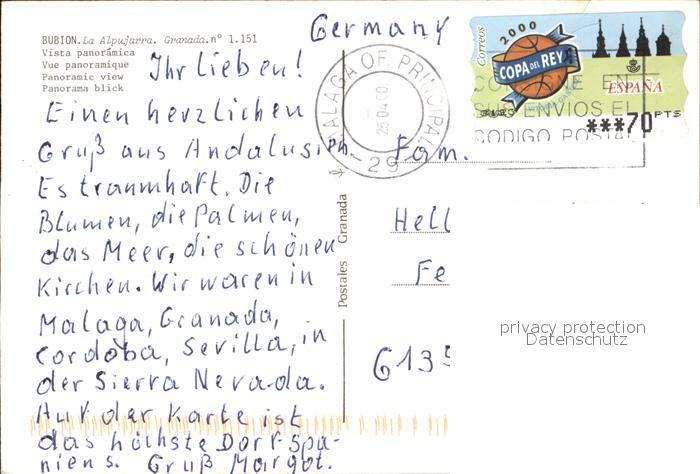 Germany
BUBION. La Alpujarra. Granada. nº 1.151
Vista panorámica
Vue panoramique
Panoramic view
Panorama blick
Ihr Lieben!
Einen herzlichen
Gruß aus Andalusien
Es traumhaft. Die
Blumen, die Palmen,
das Meer, die schönen
Kirchen. Wir waren in
Malaga, Granada,
Cordoba, Sevilla, in
der Sierra Nevada.
Auf der Karte ist
das höchste Dorf Spa-
niens. Gruß Margot.
Postales Granada
MALAGA OF. PRINCIPAL
26 04 00
- 29 -
Correos
2000
COPA DEL REY
ESPAÑA
***70 PTS
CONSIGNE EN
SUS ENVIOS EL
CODIGO POSTAL
Fam.
Hell
Fe
6135
privacy protection
Datenschutz